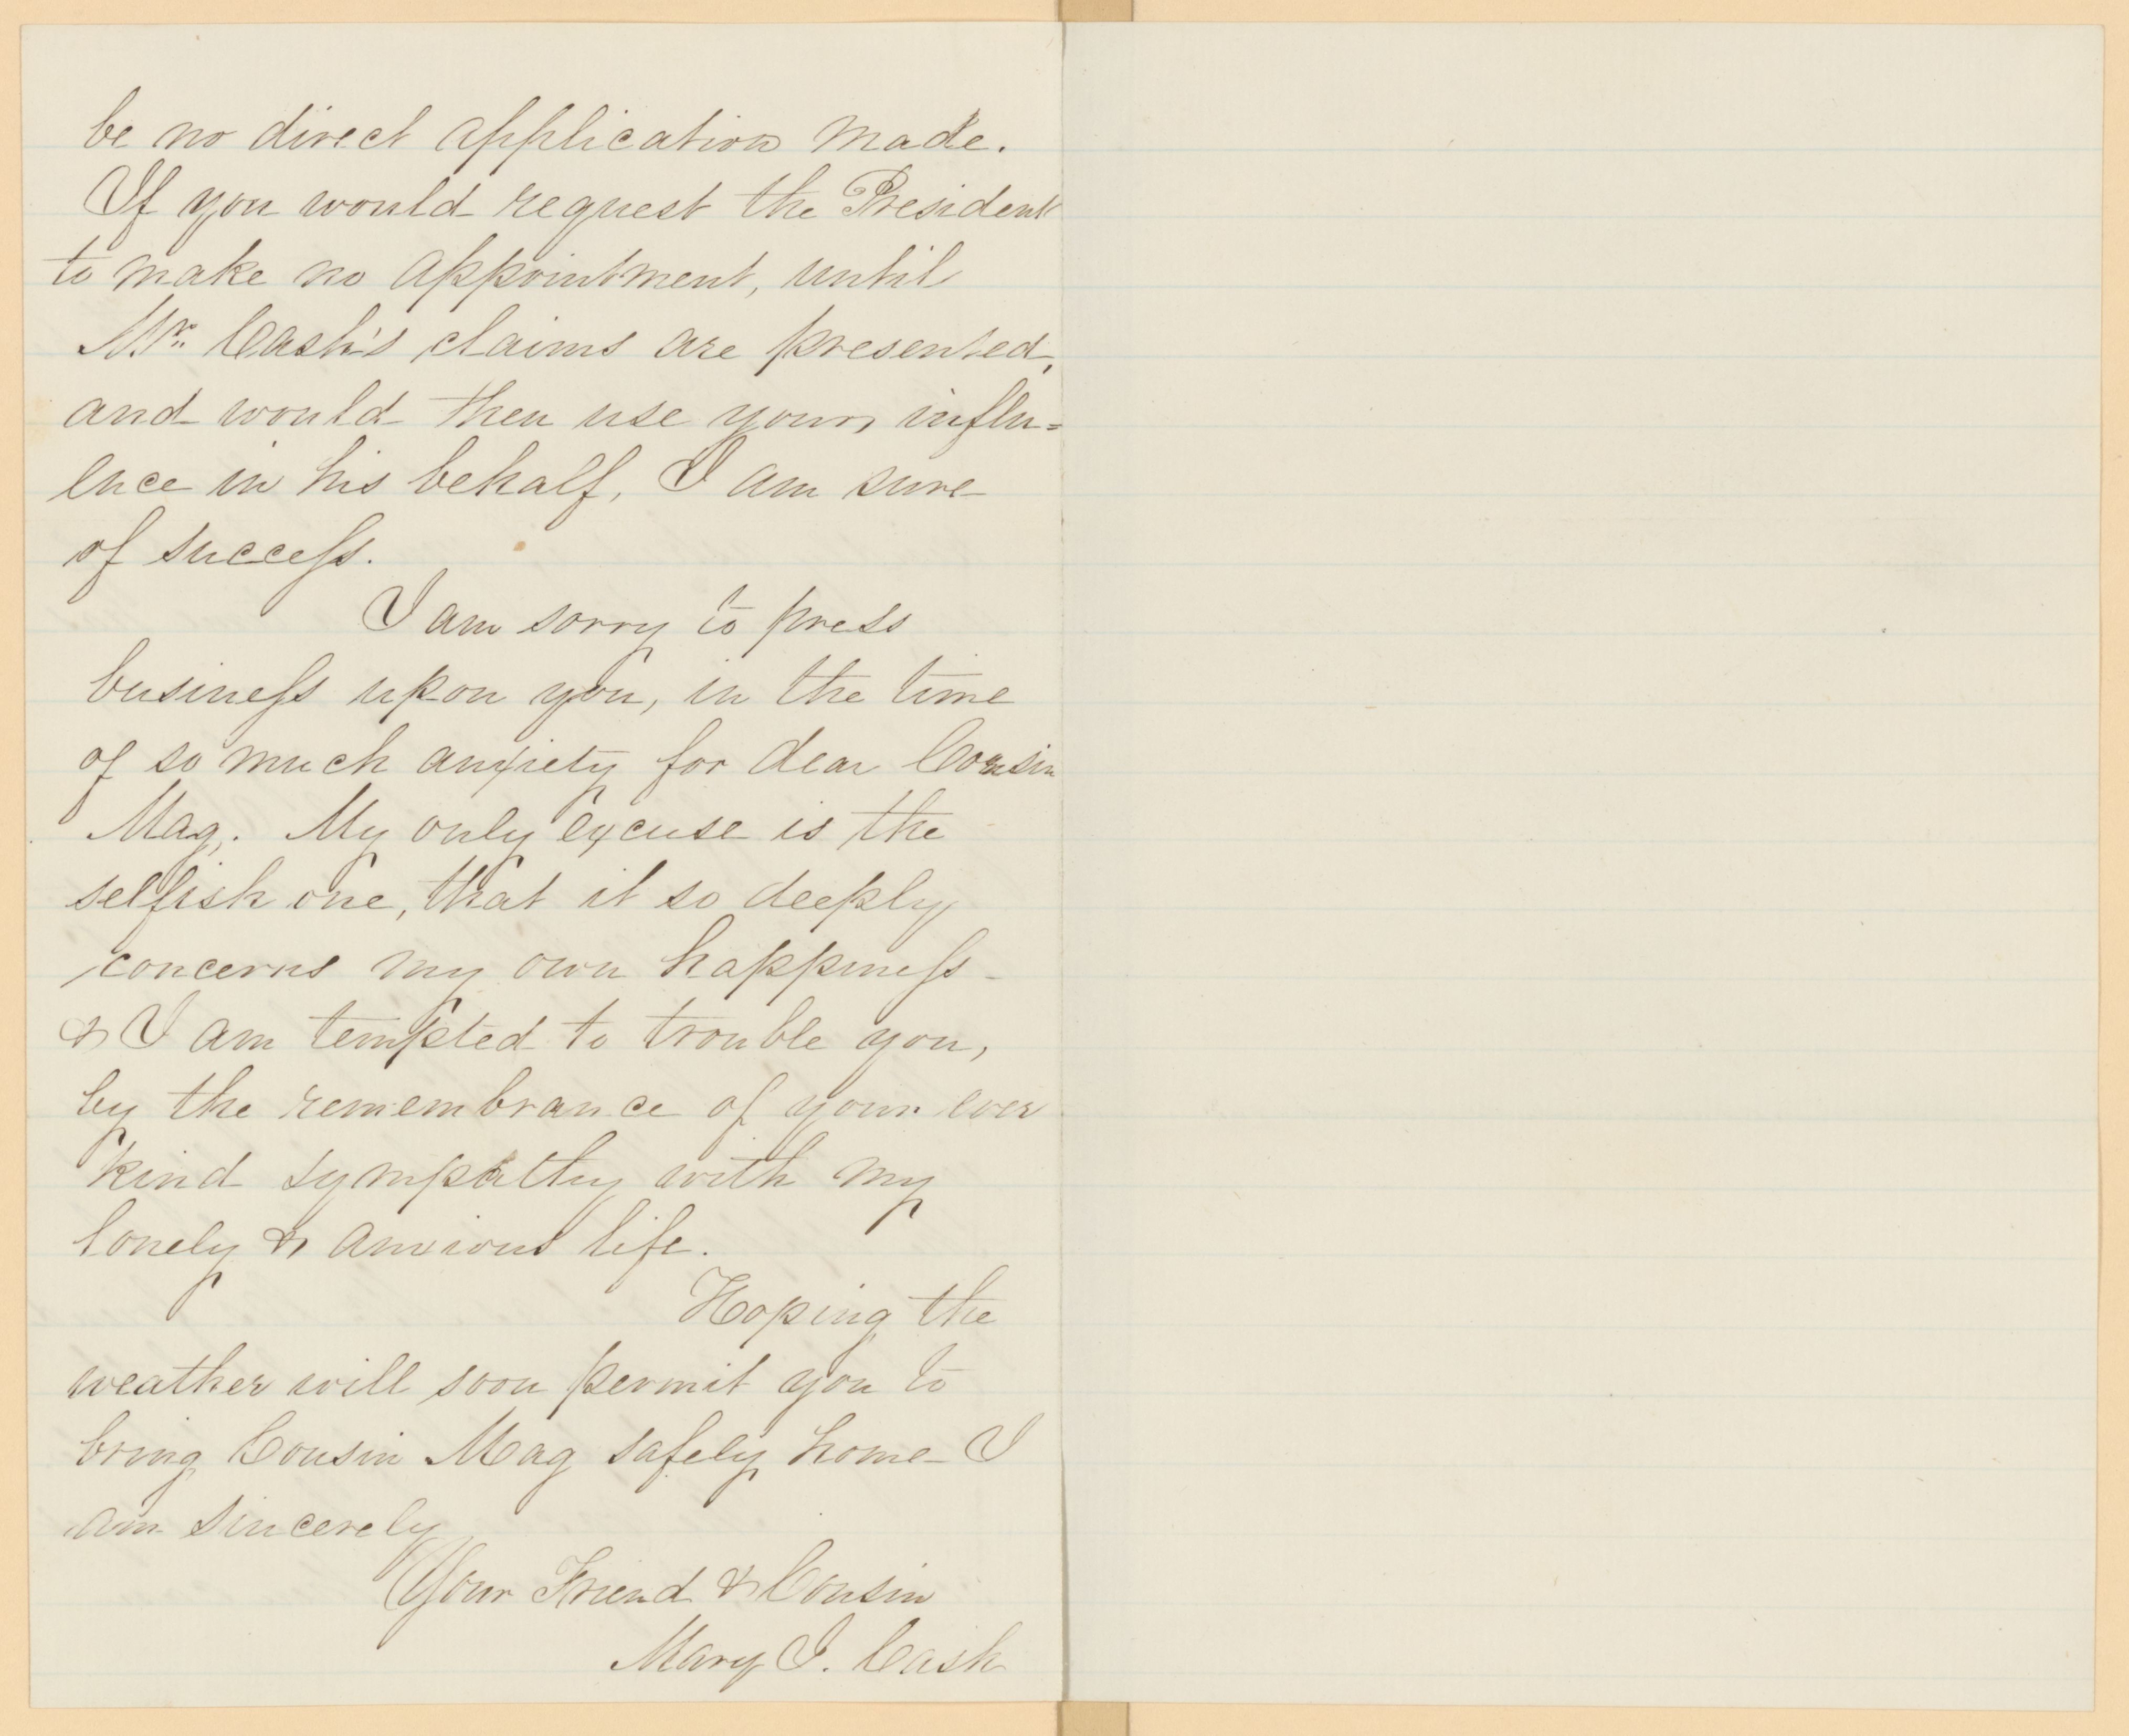 be no direct application made.
If you would request the President
to make no appointment, until
Mr. Cash's claims are presented,
and would then use your influ=
ence in his behalf, I am sure
of success.
I am sorry to press
business upon you, in the time
of so much anxiety for dear Cousin
Mag. My only excuse is the
selfish one, that it so deeply
concerns my own happiness -
& I am tempted to trouble you,
by the remembrance of your ever
kind sympathy with my
lonely & anxious life.
Hoping the
weather will soon permit you to
bring Cousin Mag safely home I
am sincerely
Your Friend & Cousin
Mary I. Cash